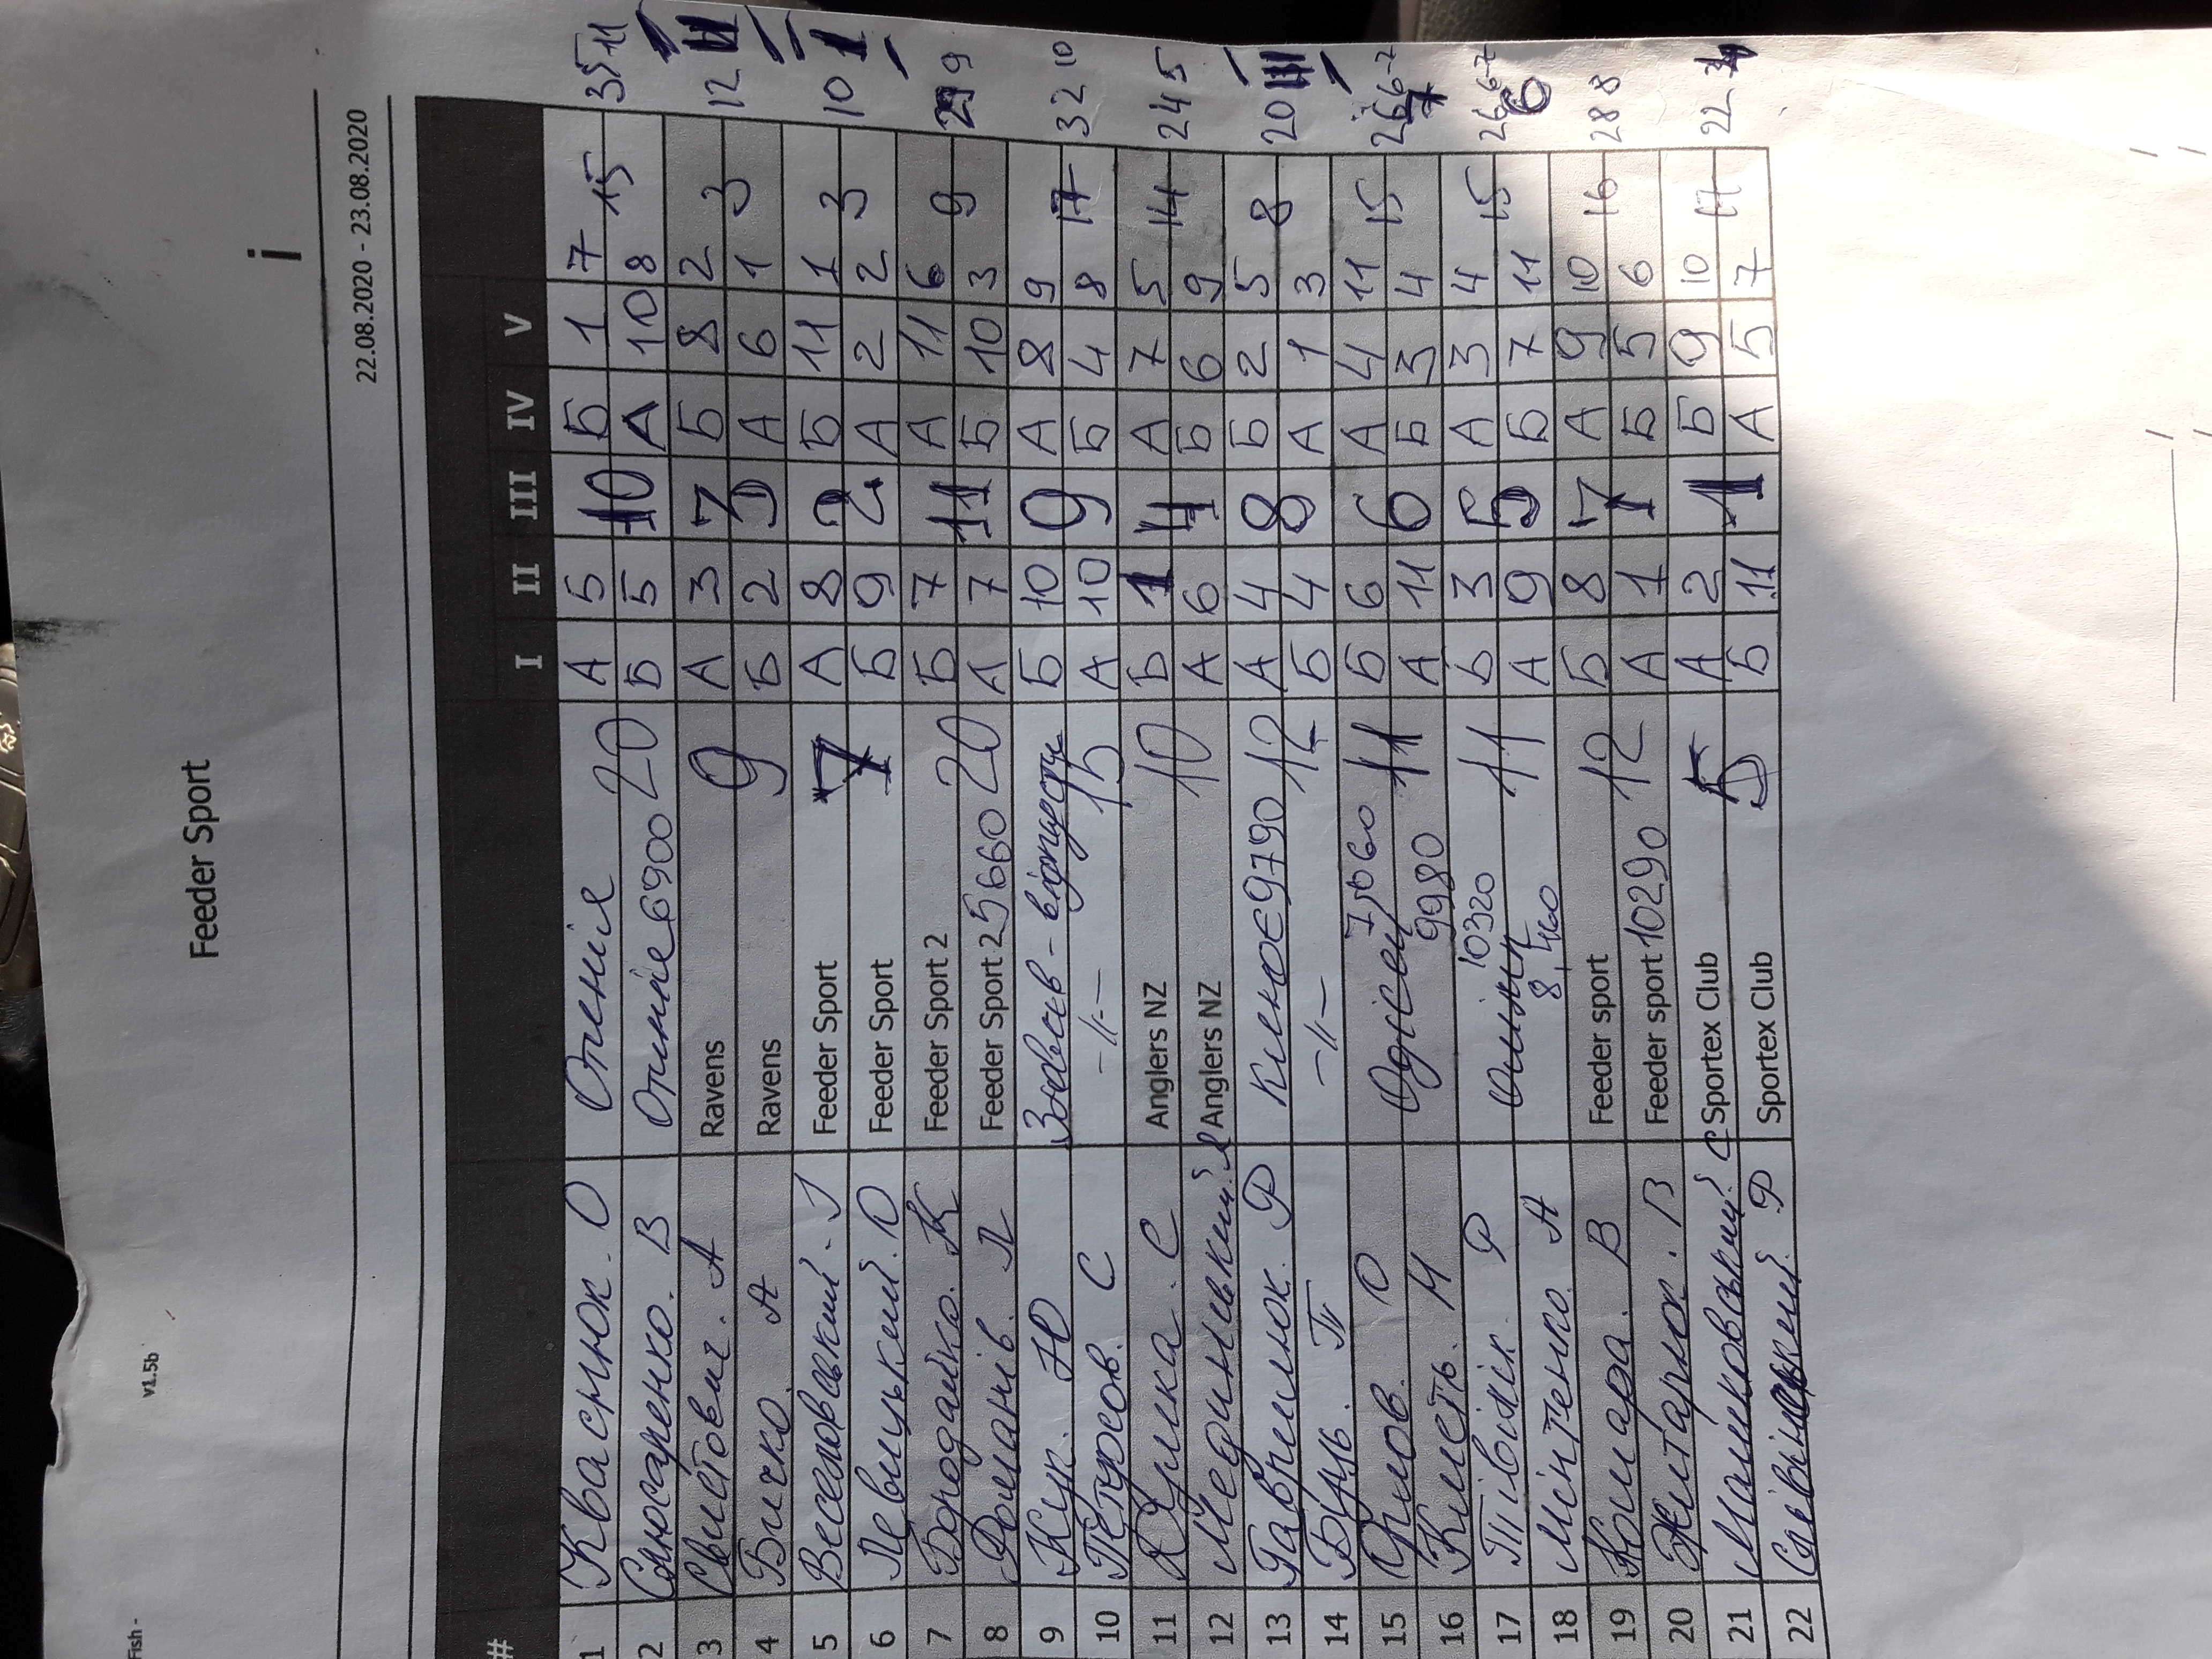 Fish -
v1.5b
Feeder Sport
i
22.08.2020 - 23.08.2020
# I II III IV V
1 Кваснюк. О А 5 Б 1 7
35 11
2 Слюсаренко. В 6900 20 Б 5 10 А 10 8 15
3 Свистович. А Ravens А 3 7 Б 8 2
12
4 Бичко А Ravens 9 Б 2 А 6 1 3
5 Веселовський. І Feeder Sport 7 А 8 2 Б 11 1
10 1
6 Левицький. О Feeder Sport Б 9 А 2 2 3
7 Бородайко. К Feeder Sport 2 Б 7 11 А 11 6
29 9
8 Романів. Л Feeder Sport 2 5660 20 А 7 Б 10 3 9
9 Кук. Ю Зоовсев - відпусти Б 10 9 А 8 9
32 10
10 Петросов. С -//- 15 А 10 Б 4 8 17
11 Юрика. С Anglers NZ 10 Б 1 4 А 7 5
24 5
12 Мединський. Я Anglers NZ А 6 Б 6 9 14
13 Гаврилюк. Р КиликоЄ 9790 12 А 4 8 Б 2 5
20
14 Буць. П -//- Б 4 А 1 3 8
15 О Одісей 7,060 11 Б 6 6 А 4 11
26 6-7
16 Кметь. М 9980 А 11 Б 3 4 15
7
17 Півторік. Р Олімп 10320 11 Б 3 5 А 3 4
26 6-7
18 Мінтенко. А 8,460 А 9 Б 7 11 15
6
19 Комара. В Feeder sport 12 Б 8 7 А 9 10
28 8
20 Житарюк. В Feeder sport 10290 А 1 Б 5 6 16
21 Маліковський. С Sportex Club 5 А 2 1 Б 9 10
22
22 Ф Sportex Club Б 11 А 5 7 17